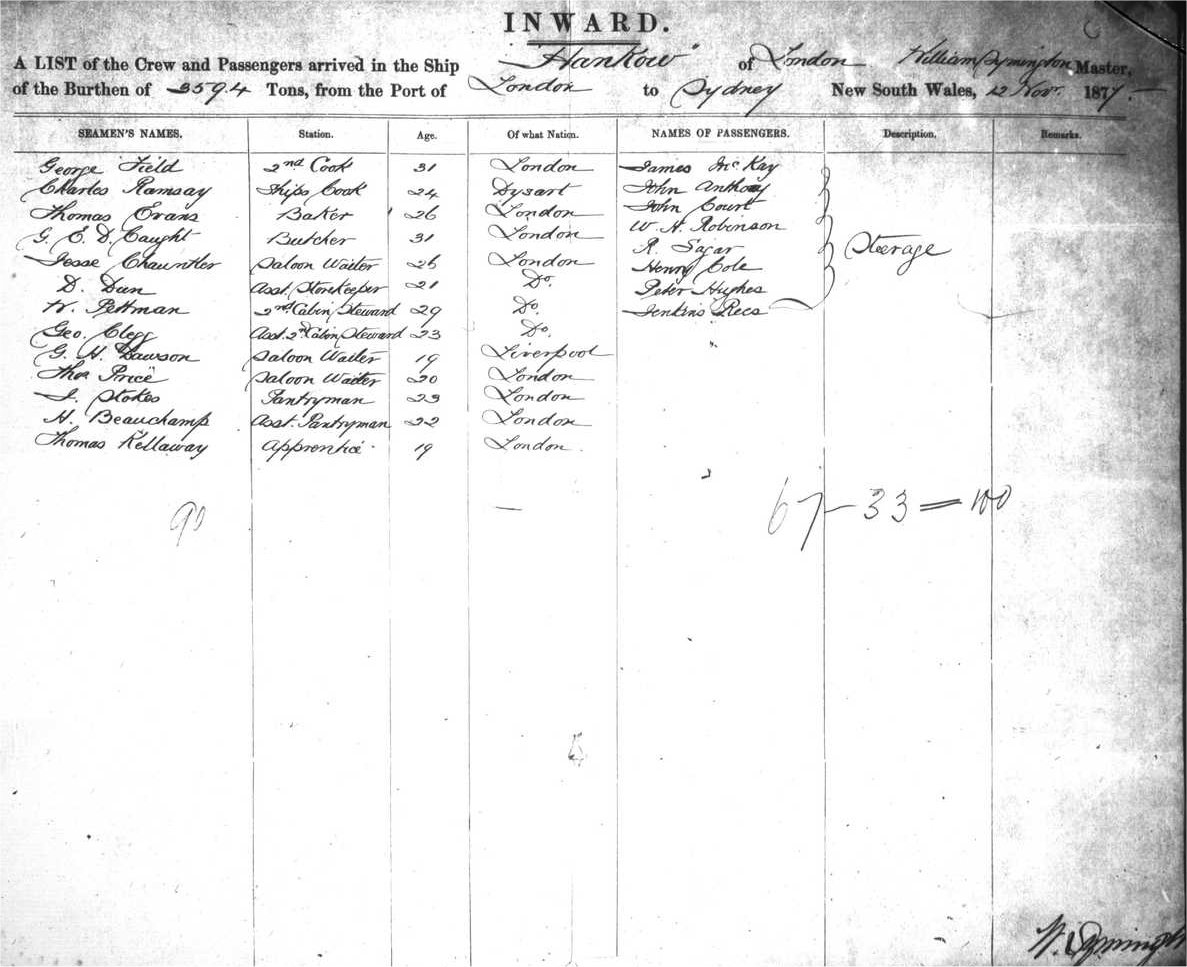 INWARD.
A LIST of the Crew and Passengers arrived in the Ship "Hankow" of London William Symington Master,
of the Burthen of 3594 Tons, from the Port of London to Sydney New South Wales, 12 Nov. 1877.
SEAMEN'S NAMES. Station. Age. Of what Nation. NAMES OF PASSENGERS. Description. Remarks.
George Field 2nd Cook 31 London James McKay
Charles Ramsay Ships Cook 24 Dysart John Anthony
Thomas Evans Baker 26 London John Court
G. E. D. Caught Butcher 31 London W. H. Robinson
Jesse Chauntler Saloon Waiter 26 London R. Sagar Steerage
D. Dun Asst. Storekeeper 21 Do. Henry Cole
W. Pettman 2nd Cabin Steward 29 Do. Peter Hughes
Geo. Clegg Asst. 2nd Cabin Steward 23 Do. Jenkins Rees
G. H. Dawson Saloon Waiter 19 Liverpool
Thos Price Saloon Waiter 20 London
J. Stokes Pantryman 23 London
H. Beauchamp Asst. Pantryman 22 London
Thomas Kellaway Apprentice 19 London
90 67-33=100
W. Symington